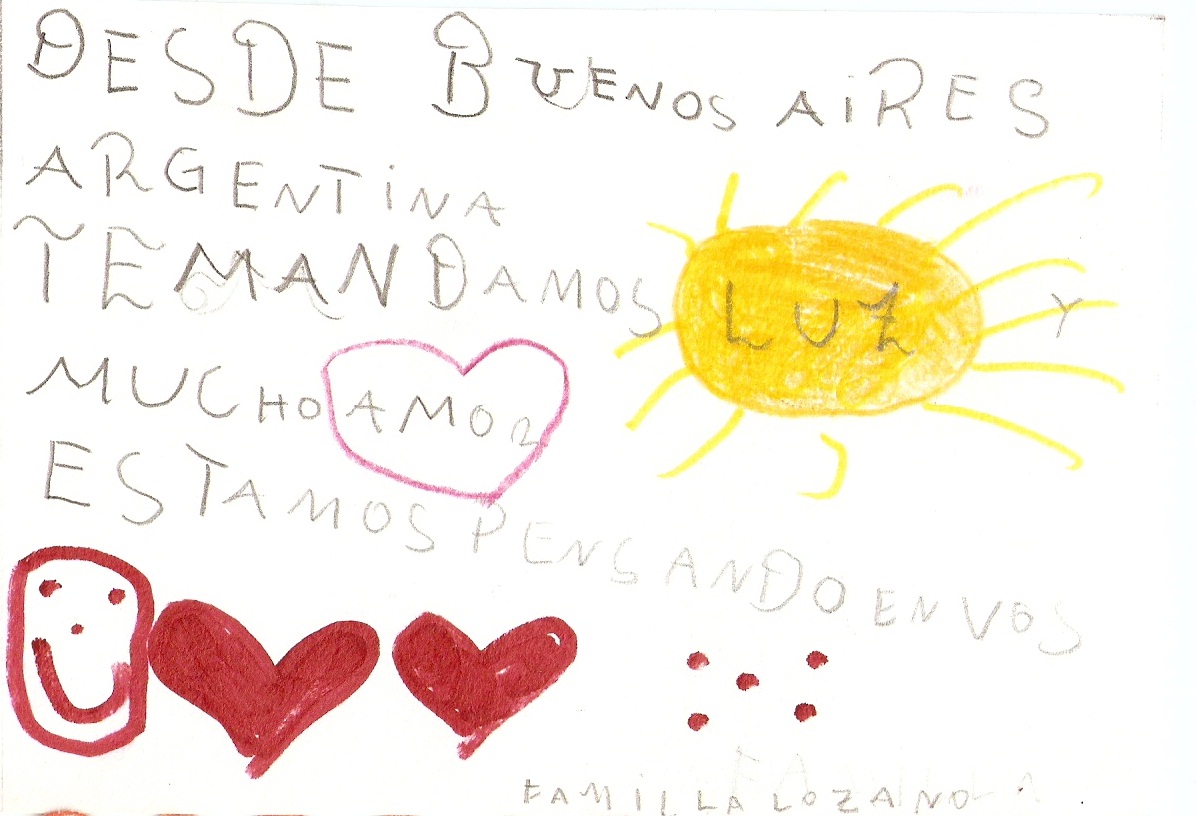 DESDE BUENOS AIRES
ARGENTINA
TE MANDAMOS LUZ Y
MUCHO AMOR
ESTAMOS PENSANDO EN VOS
FAMILIA LOZANO